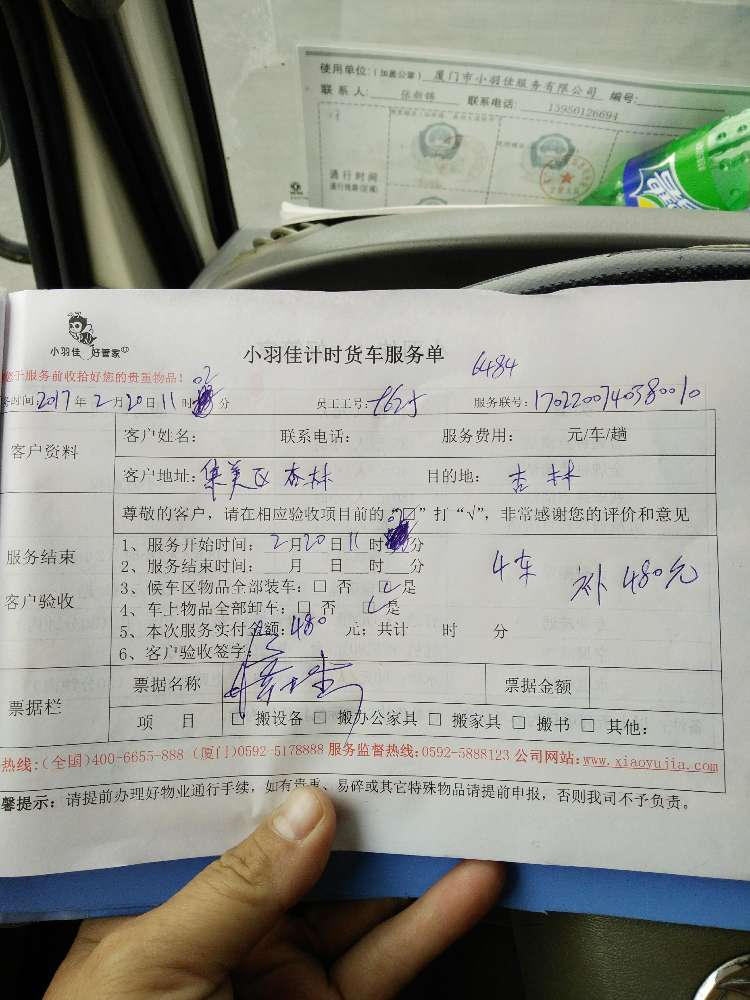 使用单位:(加盖公章) 厦门市小羽佳服务有限公司 编号:
联系人: 张新锦 联系电话: 13950126694
通行时间
通行线路(区域)
小羽佳 好管家
小羽佳计时货车服务单
6484
您于服务前收拾好您的贵重物品!
务时间2017年2月20日11时02分 员工工号: 服务联号:1702200740380010
客户资料
客户姓名: 联系电话: 服务费用: 元/车/趟
客户地址:集美区杏林 目的地: 杏林
尊敬的客户,请在相应验收项目前的“□”打“√”,非常感谢您的评价和意见
服务结束
客户验收
1、服务开始时间: 2月20日11时02分
2、服务结束时间: 月 日 时 分
3、候车区物品全部装车:□ 否 □是
4、车上物品全部卸车:□ 否 □是
5、本次服务实付金额:480 元; 共计 时 分
6、客户验收签字:
4车 补480元
票据栏
票据名称 票据金额
项 目 □ 搬设备 □ 搬办公家具 □ 搬家具 □ 搬书 □ 其他:
热线:(全国)400-6655-888 (厦门)0592-5178888 服务监督热线:0592-5888123 公司网站:www.xiaoyujia.com
馨提示: 请提前办理好物业通行手续,如有贵重、易碎或其它特殊物品请提前申报,否则我司不予负责。